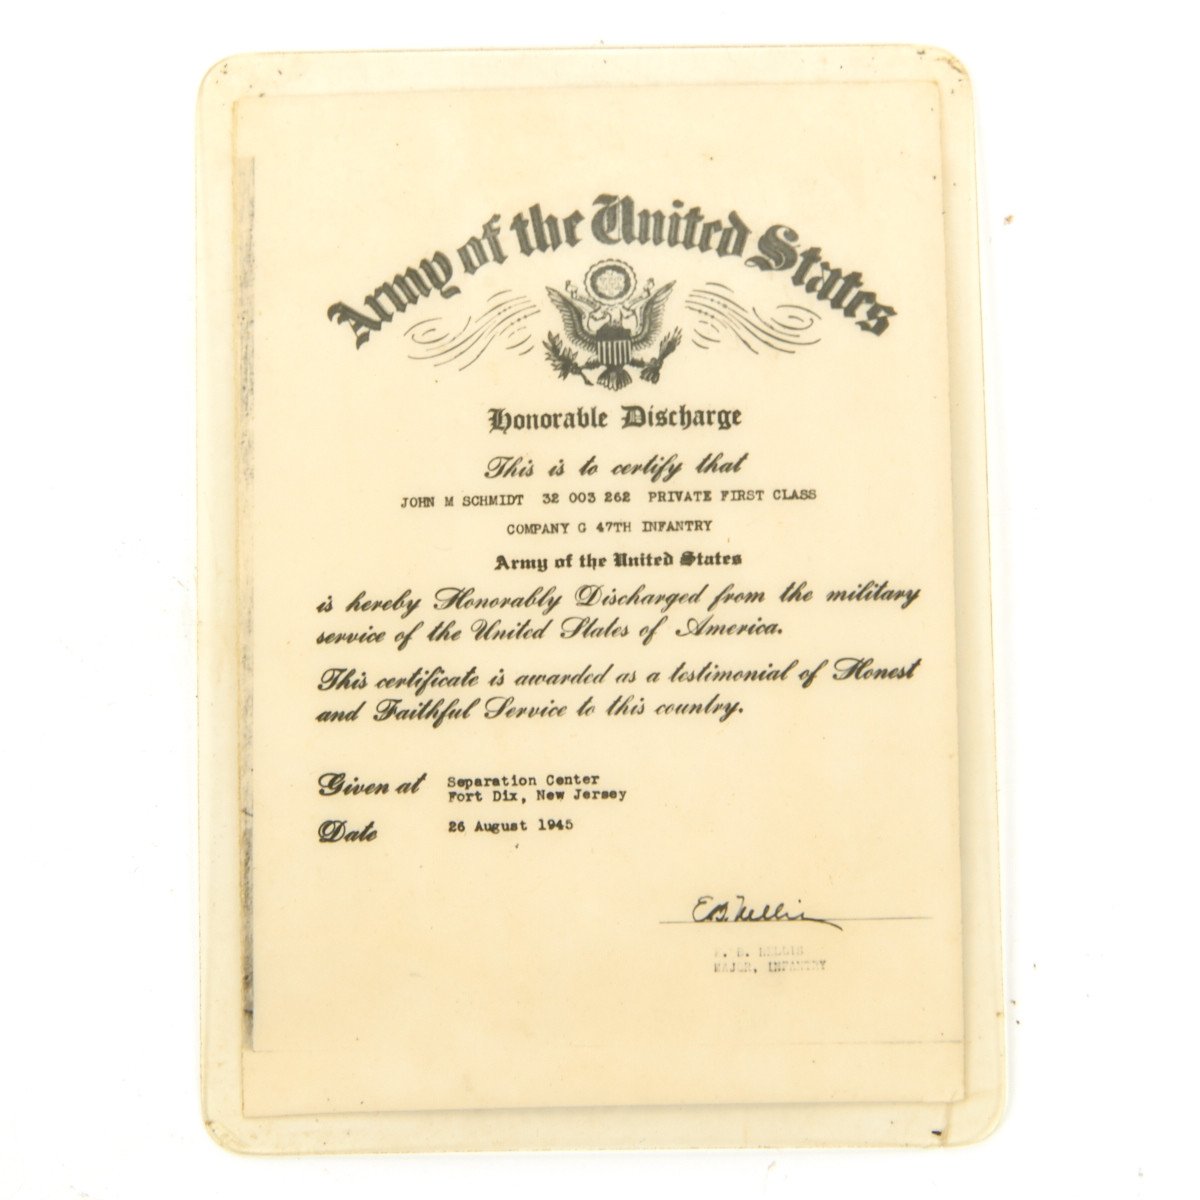 Army of the United States
Honorable Discharge
This is to certify that
JOHN M SCHMIDT 32 003 262 PRIVATE FIRST CLASS
COMPANY G 47TH INFANTRY
Army of the United States
is hereby Honorably Discharged from the military
service of the United States of America.
This certificate is awarded as a testimonial of Honest
and Faithful Service to this country.
Given at Separation Center
Fort Dix, New Jersey
Date 26 August 1945
MAJOR, INFANTRY